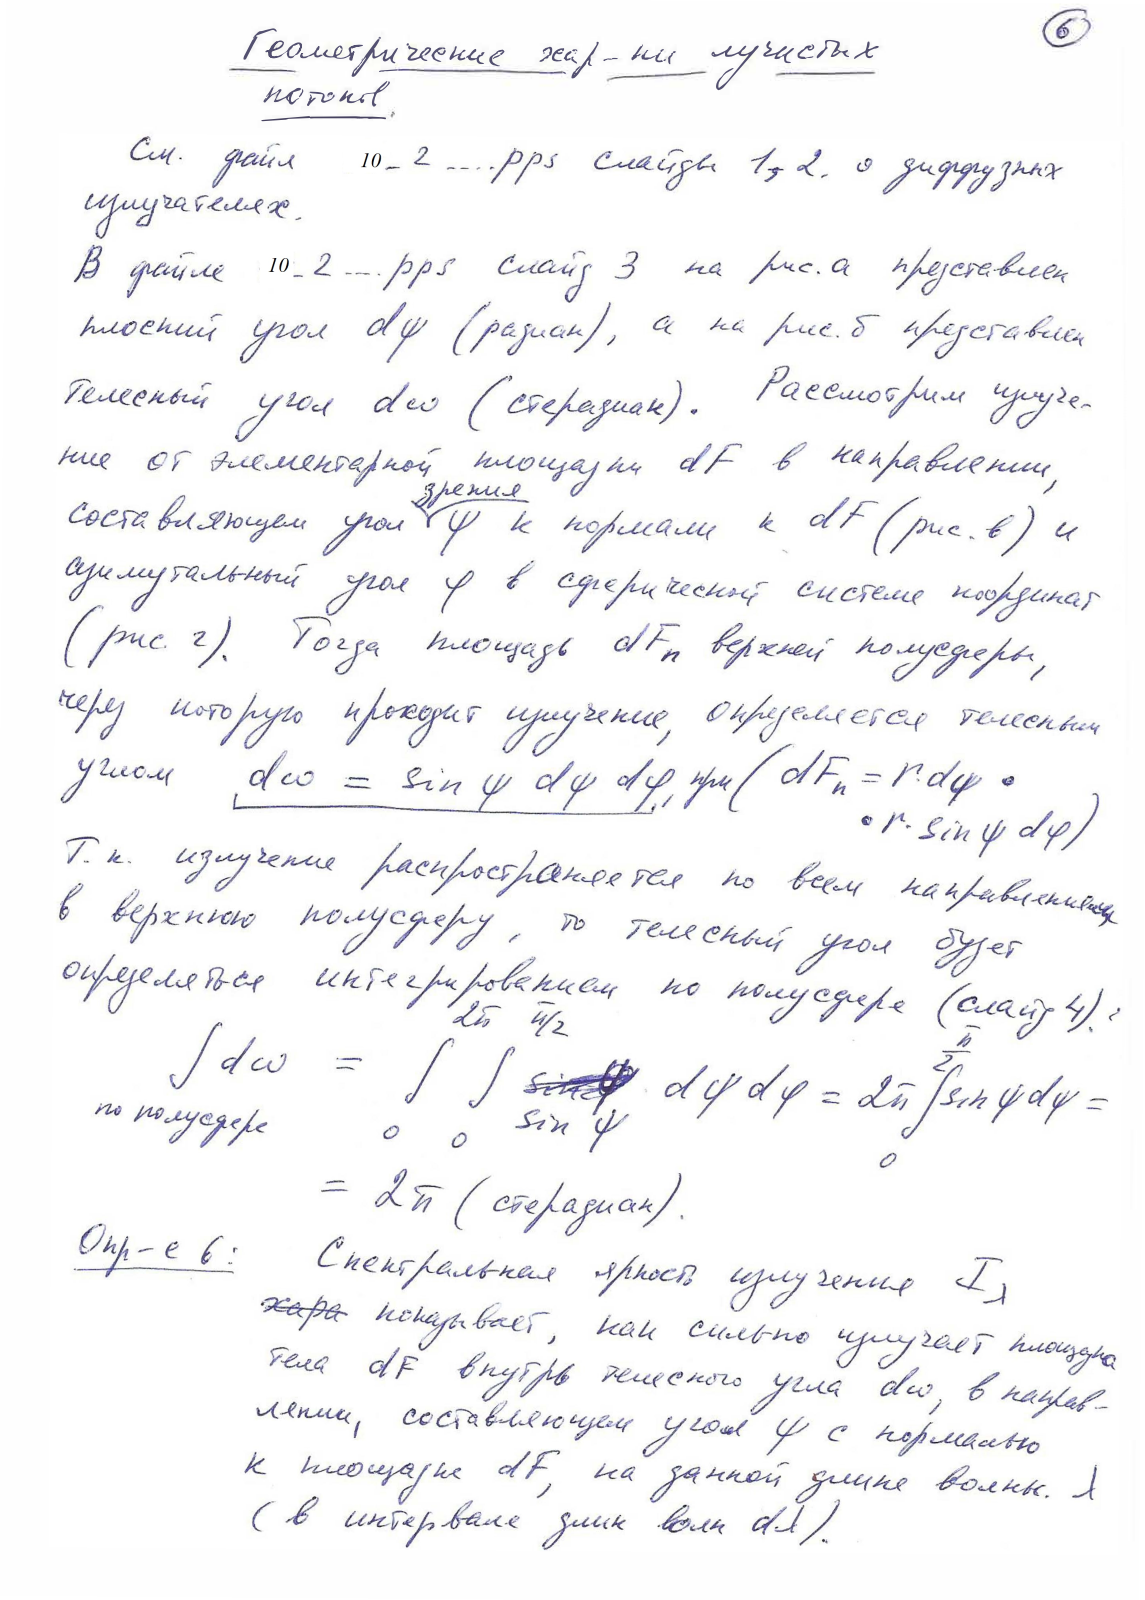 6
Геометрические хар-ки лучистых
потоков.
См. файл 10_2 ....pps слайды 1, 2. о диффузных
излучателях.
В файле 10_2 ....pps слайд 3 на рис. а представлен
плоский угол dψ (радиан), а на рис. б представлен
телесный угол dω (стерадиан). Рассмотрим излуче-
ние от элементарной площадки dF в направлении,
зрения
составляющем угол ψ к нормали к dF (рис. в) и
азимутальный угол φ в сферической системе координат
(рис. г). Тогда площадь dFп верхней полусферы,
через которую проходит излучение, определяется телесным
углом dω = sin ψ dψ dφ, при (dFп = r·dψ •
• r· sin ψ dφ)
Т.к. излучение распространяется по всем направлениям
в верхнюю полусферу, то телесный угол будет
определяться интегрированием по полусфере (слайд 4):
∫dω = ∫₀^2π ∫₀^π/2 sin ψ dψ dφ = 2π ∫₀^π/2 sin ψ dψ =
по полусфере
= 2π (стерадиан).
Опр-е 6: Спектральная яркость излучения Iλ
хара показывает, как сильно излучает площадка
тела dF внутрь телесного угла dω, в направ-
лении, составляющем угол ψ с нормалью
к площадке dF, на данной длине волны λ
(в интервале длин волн dλ).